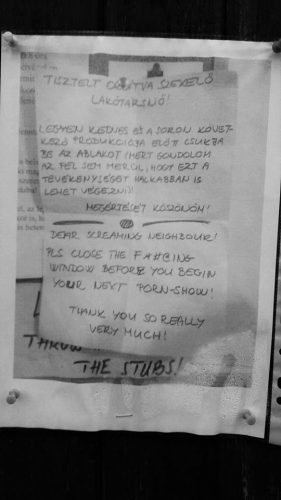 TISZTELT ORDÍTVA SZEXELŐ
LAKÓTÁRSNŐ!
LEGYEN KEDVES ÉS A SORON KÖVET-
KEZŐ PRODUKCIÓJA ELŐTT CSUKJA
BE AZ ABLAKOT! MERT GONDOLOM
AZ FEL SEM MERÜL, HOGY EZT A
TEVÉKENYSÉGET HALKABBAN IS
LEHET VÉGEZNI!
MEGÉRTÉSÉT KÖSZÖNÖM!
DEAR SCREAMING NEIGHBOUR!
PLS CLOSE THE F*#@ING
WINDOW BEFORE YOU BEGIN
YOUR NEXT PORN-SHOW!
THANK YOU SO REALLY
VERY MUCH!
THROW
THE STUBS!